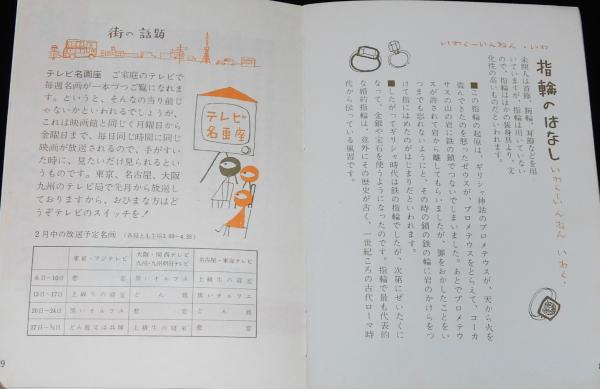 街の話題
テレビ名画座　ご家庭のテレビで
毎週名画が一本づつご覧になれま
す。というと、そんなの当り前じ
ゃないかといわれるでしょうが、
これは映画館と同じく月曜日から
金曜日まで、毎日同じ時間に同じ
映画が放送されるので、手がすい
た時に、見たいだけ見られるとい
うものです。東京、名古屋、大阪
九州のテレビ局で先月から放送し
ておりますから、おひまな方はど
うぞテレビのスイッチを！
テレビ
名画座
2月中の放送予定名画
東京・フジテレビ
大阪・関西テレビ
九州・九州朝日テレビ
名古屋・東海テレビ
6日—10日
上級生の寝室
13日—17日
上級生の寝室
どん底
黒いオルフェ
20日—24日
黒いオルフェ
どん底
上級生の寝室
9
いわくーいんねん・いわ
指輪のはなし
いわくーいんねん いわく、
未開人は首飾、腕輪、耳飾などを用
いていますが、指輪は用いていない
ので、指輪はほかの装身具より、文
化性の高いものだといわれます。
■この指輪の起原は、ギリシャ神話のプロメテウスが、天から火を
盗んできたのを怒ったゼウスが、プロメテウスをとらえて、コーカ
サスの山の岩に鉄の鎖でつないでしまいました。あとでプロメテウ
スが許されて岩から離してもらいましたが、罪をおかしたことをい
つまでも忘れないようにと、その時の鎖の鉄の輪に岩のかけらをつ
けて指にはめたのがはじまりだといわれます。
■したがってギリシャ時代は鉄の指輪でしたが、次第にぜいたくに
なって、金銀や宝石を使うようになったのです。指輪で最も代表的
な婚約指輪は、意外にその歴史が古く、一世紀ころの古代ローマ時
代から伝っている風習です。